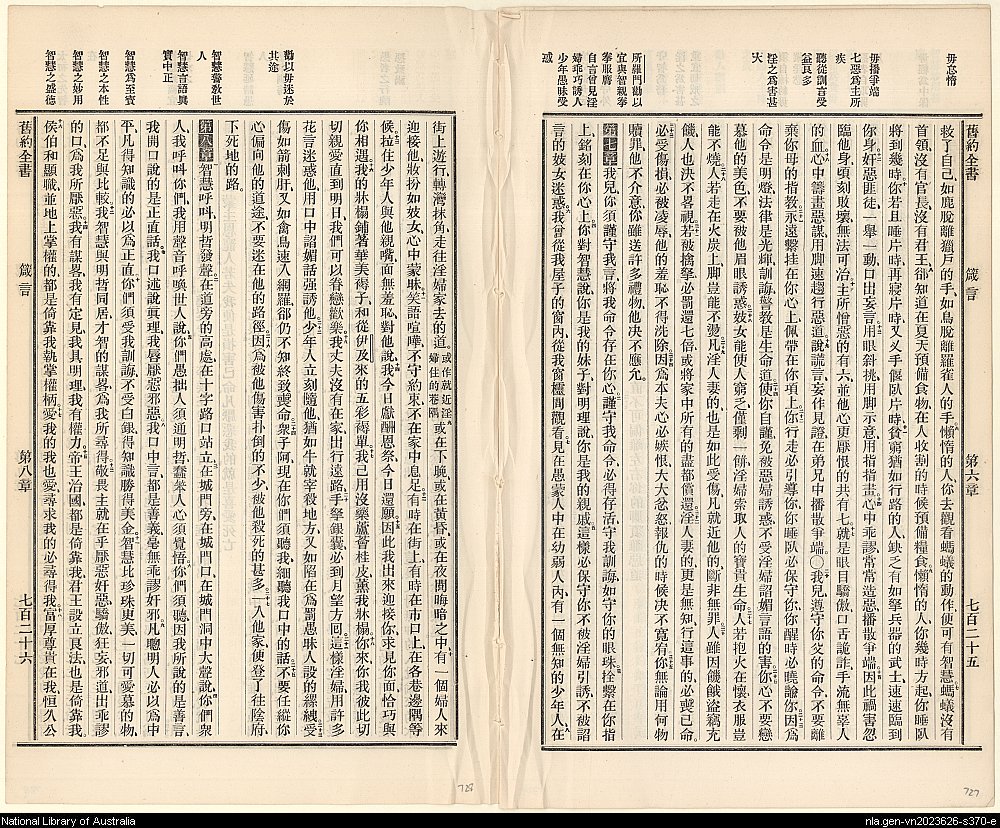 毋怠惰
毋播爭端
七惡爲主所
疾
聽從訓言受
益良多
淫之爲害甚
大
所羅門勸以
宜與智親奉
奉服膺
自言曾見淫
婦乖巧誘人
少年愚昧受
惑
舊約全書 箴言 第六章 七百二十五
救了自己如鹿脫離獵戶的手如鳥脫離羅雀人的手懶惰的人你去觀看螞蟻的動作便可有智慧螞蟻沒有
首領沒有官長沒有君王卻知道在夏天預備食物在人收割的時候預備糧食懶惰的人你幾時方起你睡臥
將到幾時你若且睡片時再寢片時又叉手偃臥片時貧窮猶如行路的人缺乏有如拏兵器的武士速速臨到
你身奸惡匪徒一舉一動口出妄言用眼斜挑用脚示意用指指畫心中乖謬常常造惡播散爭端因此禍害忽
臨他身頃刻敗壞無法可治主所憎惡的有六並他心更厭恨的共有七就是眼目驕傲口舌詭詐手流無辜人
的血心中籌畫惡謀用脚速趨行惡道說謊言妄作見證在弟兄中播散爭端〇我兒遵守你父的命令不要離
棄你母的指教永遠繫挂在你心上佩帶在你項上你行走必引導你你睡臥必保守你你醒時必曉諭你因爲
命令是明燈法律是光輝訓誨警教是生命道使你自謹免被惡婦誘惑不受淫婦諂媚言語的害你心不要戀
慕他的美色不要被他眉眼誘惑妓女能使人窮乏僅剩一餅淫婦索取人的寶貴生命人若抱火在懷衣服豈
能不燒人若走在火炭上脚豈能不燙凡淫人妻的也是如此受傷凡就近他的斷非無罪人雖因饑餓盜竊充
饑人也決不畧視若被擒拏必罰還七倍或將家中所有的盡都償還淫人妻的更是無知行這事的必喪己命
必受傷損必被凌辱他的羞恥不得洗除因爲本夫心必嫉恨大大忿怒報仇的時候決不寬宥你無論用何物
贖罪他不介意你雖送許多禮物他决不應允
第七章我兒你須謹守我言將我命令存在你心謹守我命令必得存活守我訓誨如守你的眼珠拴繫在你指
上銘刻在你心上你對智慧說你是我的妹子對明理說你是我的親戚這樣必保守你不被淫婦引誘不被諂
言的妓女迷惑我曾從我屋子的窗內從我窗櫺間觀看見在愚蒙人中在幼弱人內有一個無知的少年人在
勸以毋迷於
其途
智慧警敎世
人
智慧言語眞
實中正
智慧爲至寶
智慧之本性
智慧之妙用
智慧之盛德
街上遊行轉灣抹角走往淫婦家去的道或作就近淫婦住的巷隅或在下晚或在黃昏或在夜間晦暗之中有一個婦人來
迎接他妝扮如妓女心中蒙昧笑語喧嘩不守約束不在家中息足有時在街上有時在市口上在各巷邊隅等
候拉住少年人與他親嘴面無羞恥對他說我今日獻酬恩祭今日還願因此我出來迎接你求見你面恰巧與
你相遇我的牀榻鋪著華美褥子和從伊及來的五彩褥單我己用沒藥蘆薈桂皮薰我牀榻你來你我彼此切
切親愛直到明日我們可以眷戀歡樂我丈夫沒有在家出行遠路手拏銀囊必到月望方回這樣淫婦用許多
花言迷惑他用口中諂媚話强誘他少年人立刻隨他猶如牛就宰殺地方又如陷在爲罰愚昧人設的縲絏受
傷如箭刺肝又如禽鳥速入網羅卻仍不知終致喪命衆子阿現在你們須聽我細聽我口中的話不要任縱你
心偏向他的道途不要迷在他的路徑因爲被他傷害扑倒的不少被他殺死的甚多一入他家便登了往陰府
下死地的路
第八章智慧呼叫明哲發聲在道旁的高處在十字路口站立在城門旁在城門口在城門洞中大聲說你們衆
人我呼叫你們我用聲音呼喚世人說你們愚拙人須通明哲蠢笨人心須覺悟你們須聽因我所說的是善言
我開口說的是正直話我口述說眞理我唇厭惡邪惡我口中言都是善義毫無乖謬奸邪凡聰明人必以爲中
平凡得知識的必以爲正直你們須受我訓誨不受白銀得知識勝得美金智慧比珍珠更美一切可愛慕的物
都不足與比較我智慧與明哲同居才智的謀畧爲我所尋得敬畏主就在乎厭惡奸惡驕傲狂妄邪道出乖謬
的口爲我所厭惡我有謀畧我有定見我具明理我有權力帝王治國都是倚靠我君王設立良法也是倚靠我
侯伯和顯職並地上掌權的都是倚靠我執掌權柄愛我的我也愛尋求我的必尋得我富厚尊貴在我恒久公
舊約全書 箴言 第八章 七百二十六
728
727
National Library of Australia
nla.gen-vn2023626-s370-e